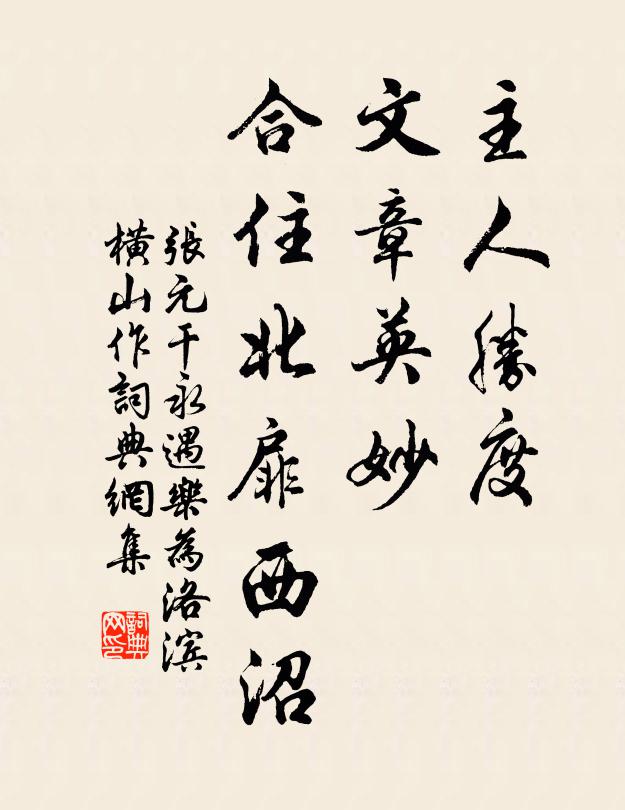 主人勝度
文章英妙
合住北扉西沼
張元干永遇樂為洛滨
橫山作詞典網集
詞典网印